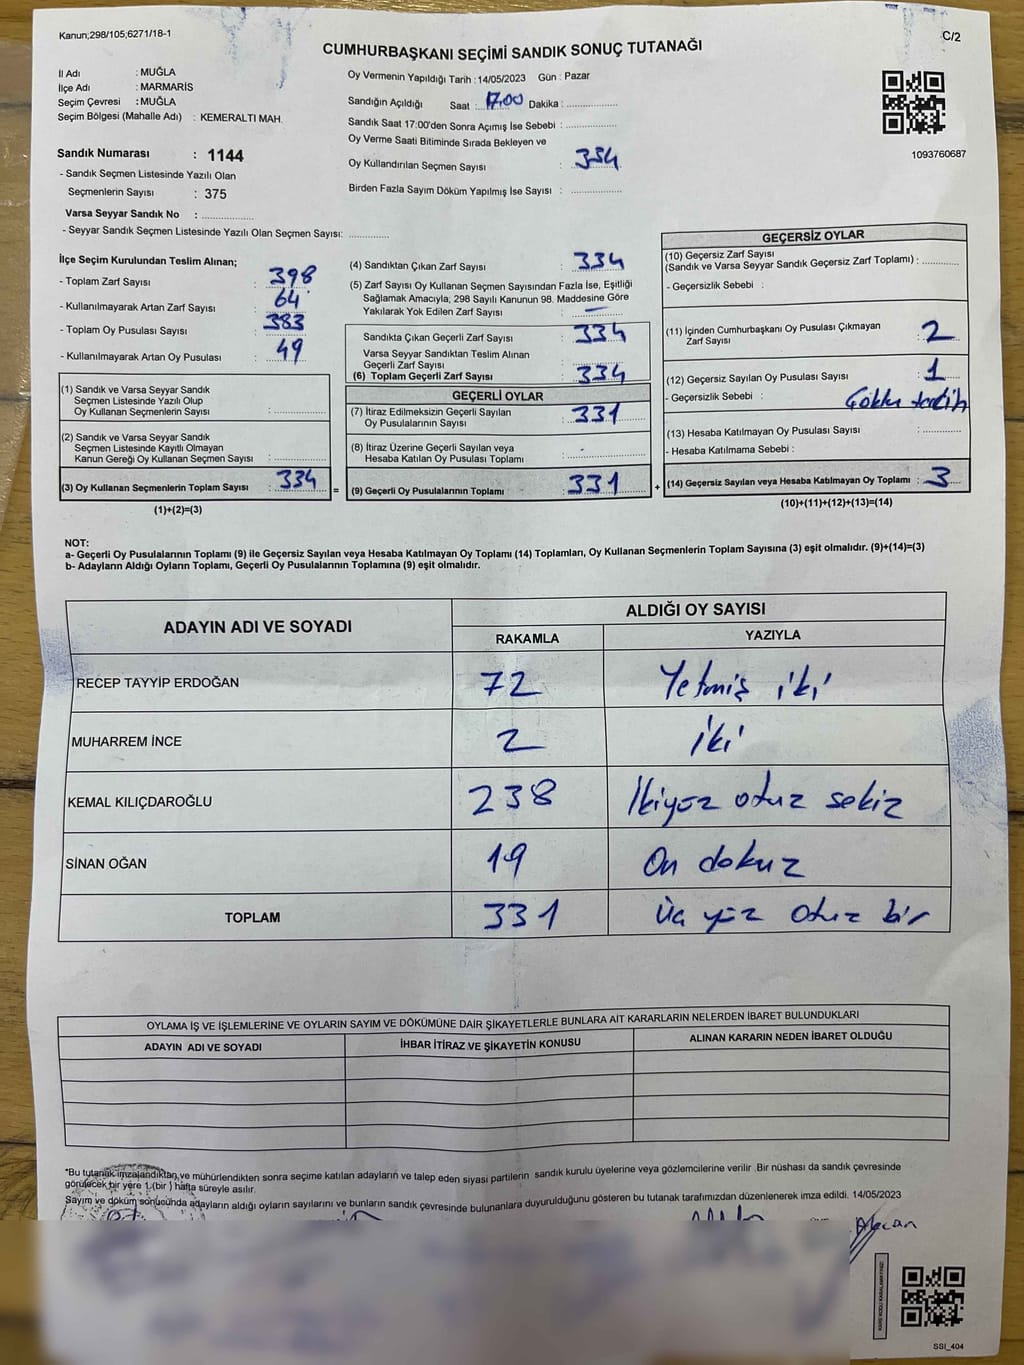 Kanun;298/105;6271/18-1
C/2
CUMHURBAŞKANI SEÇİMİ SANDIK SONUÇ TUTANAĞI
İl Adı : MUĞLA
İlçe Adı : MARMARİS
Seçim Çevresi : MUĞLA
Seçim Bölgesi (Mahalle Adı) : KEMERALTI MAH.
Sandık Numarası : 1144
- Sandık Seçmen Listesinde Yazılı Olan
Seçmenlerin Sayısı : 375
Varsa Seyyar Sandık No : ..............
- Seyyar Sandık Seçmen Listesinde Yazılı Olan Seçmen Sayısı: ............
Oy Vermenin Yapıldığı Tarih : 14/05/2023 Gün : Pazar
Sandığın Açıldığı Saat : 17.00 Dakika : ..............
Sandık Saat 17:00'den Sonra Açımış İse Sebebi : ..............
Oy Verme Saati Bitiminde Sırada Bekleyen ve
Oy Kullandırılan Seçmen Sayısı : 334
Birden Fazla Sayım Döküm Yapılmış İse Sayısı : ..............
1093760687
İlçe Seçim Kurulundan Teslim Alınan;
- Toplam Zarf Sayısı : 398
- Kullanılmayarak Artan Zarf Sayısı : 64
- Toplam Oy Pusulası Sayısı : 383
- Kullanılmayarak Artan Oy Pusulası : 49
(1) Sandık ve Varsa Seyyar Sandık
Seçmen Listesinde Yazılı Olup
Oy Kullanan Seçmenlerin Sayısı : ..............
(2) Sandık ve Varsa Seyyar Sandık
Seçmen Listesinde Kayıtlı Olmayan
Kanun Gereği Oy Kullanan Seçmen Sayısı : ..............
(3) Oy Kullanan Seçmenlerin Toplam Sayısı : 334
(1)+(2)=(3)
=
(4) Sandıktan Çıkan Zarf Sayısı : 334
(5) Zarf Sayısı Oy Kullanan Seçmen Sayısından Fazla İse, Eşitliği
Sağlamak Amacıyla, 298 Sayılı Kanunun 98. Maddesine Göre
Yakılarak Yok Edilen Zarf Sayısı : —
Sandıkta Çıkan Geçerli Zarf Sayısı : 334
Varsa Seyyar Sandıktan Teslim Alınan
Geçerli Zarf Sayısı : ..............
(6) Toplam Geçerli Zarf Sayısı : 334
GEÇERLİ OYLAR
(7) İtiraz Edilmeksizin Geçerli Sayılan
Oy Pusulalarının Sayısı : 331
(8) İtiraz Üzerine Geçerli Sayılan veya
Hesaba Katılan Oy Pusulası Toplamı : ..............
(9) Geçerli Oy Pusulalarının Toplamı : 331
+
GEÇERSİZ OYLAR
(10) Geçersiz Zarf Sayısı
(Sandık ve Varsa Seyyar Sandık Geçersiz Zarf Toplamı) : ............
- Geçersizlik Sebebi :
(11) İçinden Cumhurbaşkanı Oy Pusulası Çıkmayan
Zarf Sayısı : 2
(12) Geçersiz Sayılan Oy Pusulası Sayısı : 1
- Geçersizlik Sebebi :
(13) Hesaba Katılmayan Oy Pusulası Sayısı : ............
- Hesaba Katılmama Sebebi :
(14) Geçersiz Sayılan veya Hesaba Katılmayan Oy Toplamı : 3
(10)+(11)+(12)+(13)=(14)
NOT:
a- Geçerli Oy Pusulalarının Toplamı (9) ile Geçersiz Sayılan veya Hesaba Katılmayan Oy Toplamı (14) Toplamları, Oy Kullanan Seçmenlerin Toplam Sayısına (3) eşit olmalıdır. (9)+(14)=(3)
b- Adayların Aldığı Oyların Toplamı, Geçerli Oy Pusulalarının Toplamına (9) eşit olmalıdır.
ADAYIN ADI VE SOYADI
ALDIĞI OY SAYISI
RAKAMLA YAZIYLA
RECEP TAYYİP ERDOĞAN 72 Yetmiş iki
MUHARREM İNCE 2 iki
KEMAL KILIÇDAROĞLU 238 İkiyüz otuz sekiz
SİNAN OĞAN 19 On dokuz
TOPLAM 331 Üç yüz otuz bir
OYLAMA İŞ VE İŞLEMLERİNE VE OYLARIN SAYIM VE DÖKÜMÜNE DAİR ŞİKAYETLERLE BUNLARA AİT KARARLARIN NELERDEN İBARET BULUNDUKLARI
ADAYIN ADI VE SOYADI İHBAR İTİRAZ VE ŞİKAYETİN KONUSU ALINAN KARARIN NEDEN İBARET OLDUĞU
*Bu tutanak imzalandıktan ve mühürlendikten sonra seçime katılan adayların ve talep eden siyasi partilerin sandık kurulu üyelerine veya gözlemcilerine verilir .Bir nüshası da sandık çevresinde
görülecek bir yere 1 (bir ) hafta süreyle asılır.
Sayım ve döküm sonucunda adayların aldığı oyların sayılarını ve bunların sandık çevresinde bulunanlara duyurulduğunu gösteren bu tutanak tarafımızdan düzenlenerek imza edildi. 14/05/2023
SSI_404